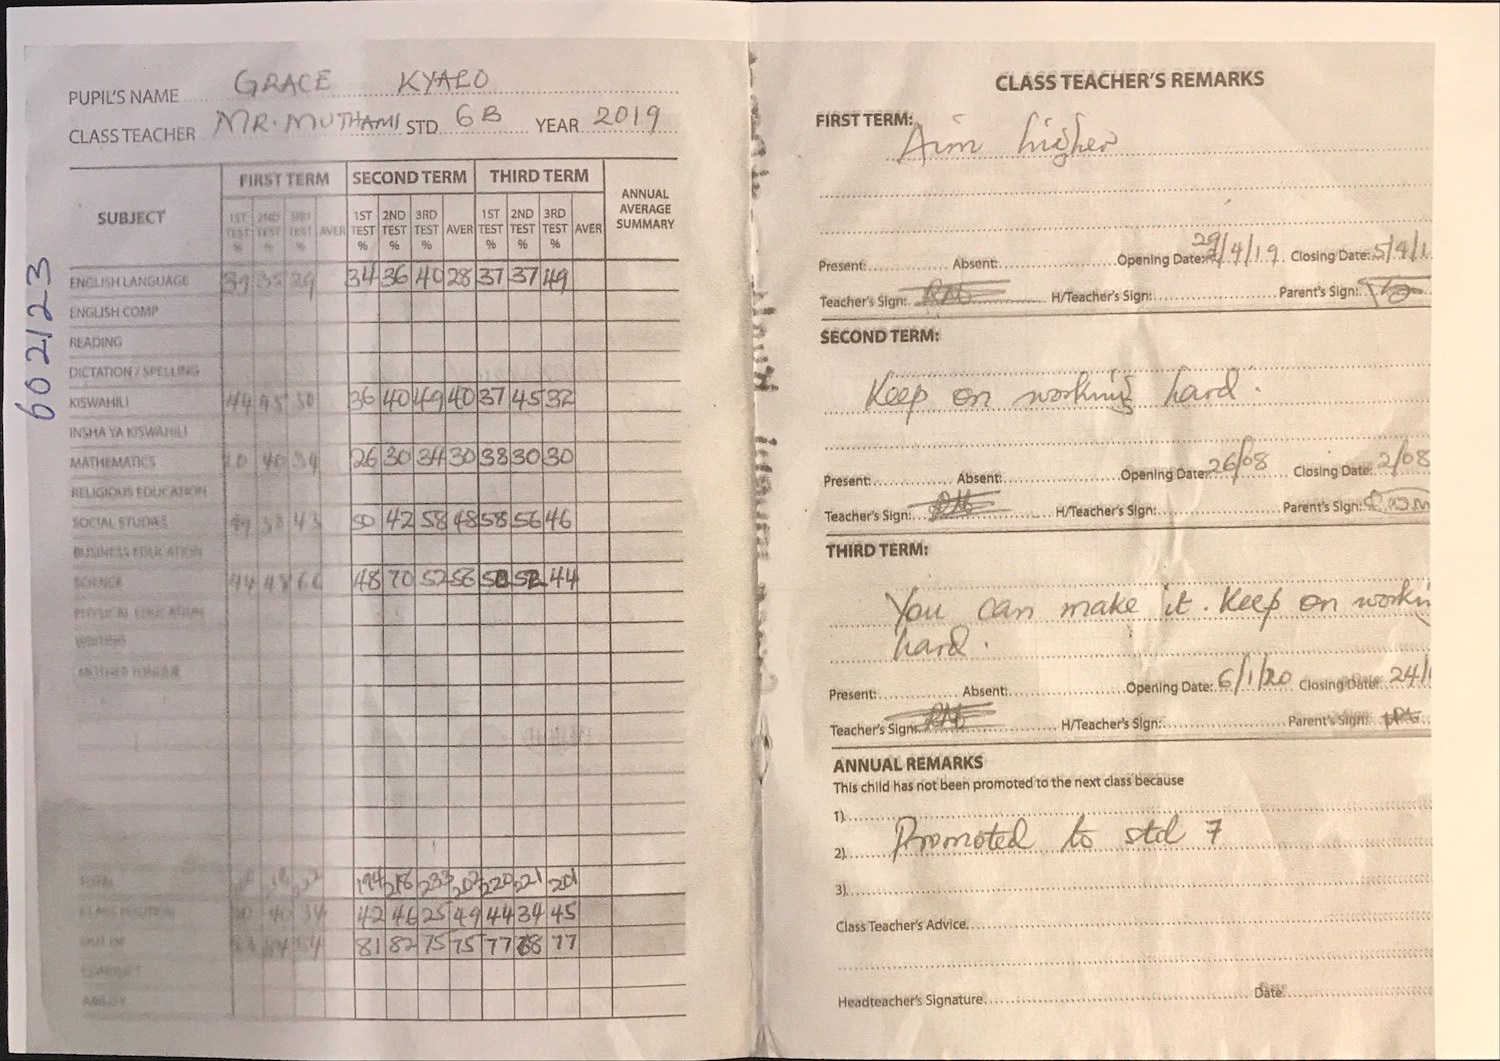 602123
PUPIL'S NAME GRACE KYALO
CLASS TEACHER MR. MUTHAMI STD 6B YEAR 2019
SUBJECT FIRST TERM SECOND TERM THIRD TERM ANNUAL AVERAGE SUMMARY
1ST TEST % 2ND TEST % 3RD TEST % AVER 1ST TEST % 2ND TEST % 3RD TEST % AVER 1ST TEST % 2ND TEST % 3RD TEST % AVER
ENGLISH LANGUAGE 39 35 29 34 36 40 28 37 37 49
ENGLISH COMP
READING
DICTATION / SPELLING
KISWAHILI 44 45 50 36 40 49 40 37 45 32
INSHA YA KISWAHILI
MATHEMATICS 40 34 26 30 34 30 38 30 30
RELIGIOUS EDUCATION
SOCIAL STUDIES 43 50 42 58 48 58 56 46
BUSINESS EDUCATION
SCIENCE 44 48 66 48 70 52 56 50 52 44
PHYSICAL EDUCATION
WRITING
MOTHER TONGUE
TOTAL 194 218 233 202 220 221 201
CLASS POSITION 40 34 42 46 25 49 44 34 45
OUT OF 81 82 75 75 77 78 77
CONDUCT
CLASS TEACHER'S REMARKS
FIRST TERM:
Aim higher
Present: Absent: Opening Date: 29/4/19 Closing Date: 5/4/1
Teacher's Sign: H/Teacher's Sign: Parent's Sign:
SECOND TERM:
Keep on working hard.
Present: Absent: Opening Date: 26/08 Closing Date: 2/08
Teacher's Sign: H/Teacher's Sign: Parent's Sign:
THIRD TERM:
You can make it. Keep on workin
hard.
Present: Absent: Opening Date: 6/1/20 Closing Date: 24/1
Teacher's Sign: H/Teacher's Sign: Parent's Sign:
ANNUAL REMARKS
This child has not been promoted to the next class because
1)
2) Promoted to std 7
3)
Class Teacher's Advice
Headteacher's Signature Date